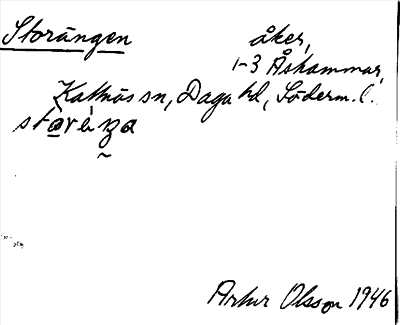 Storängen åker,
1-3 Åskammar,
Kattnäs sn, Daga hd, Söderm. l.
Artur Olsson 1946